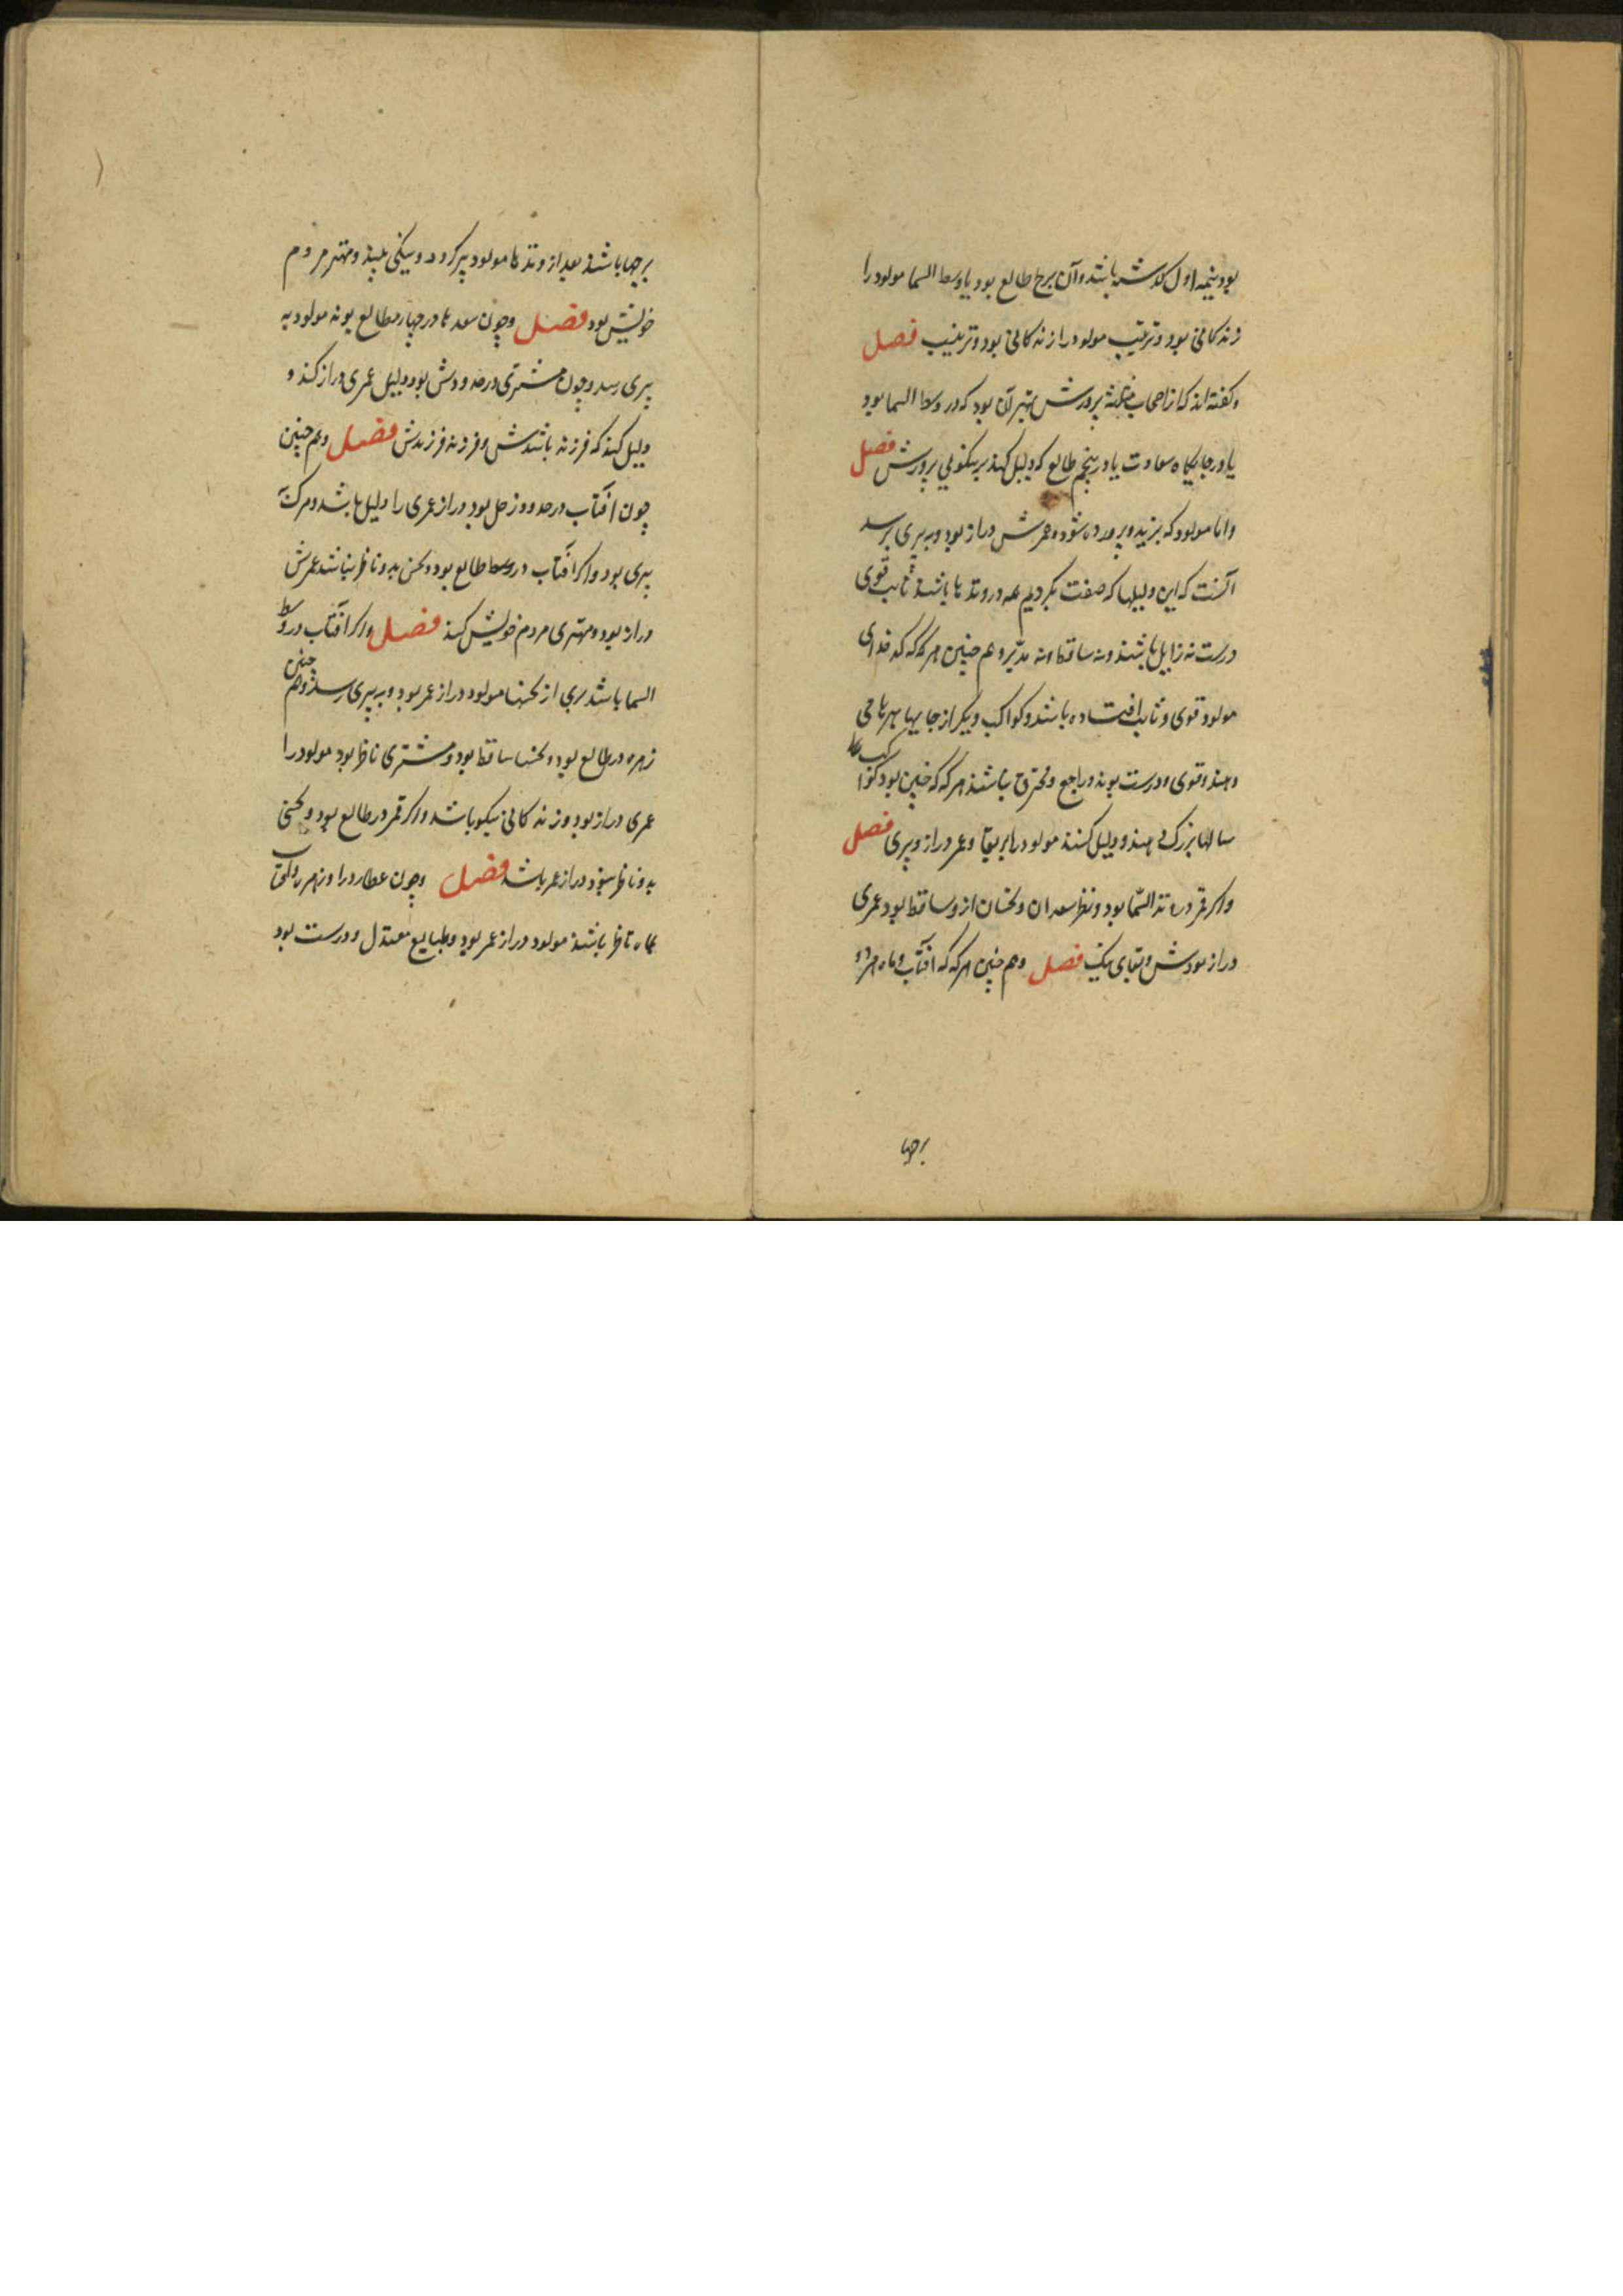 بود بنیمه اول کدشته باشد و آن برج طالع بود یا وسط السما مولود را
زندکانی بود و تربیت مولود را زندکانی بود و تربیت فصل
و کفته اند که از اصحاب مثلثه پرورش بهتر آن بود که در وسط السما بود
یا در جایکاه سعادت یا در پنجم طالع که دلیل کند بر نیکویی پرورش فصل
و اما مولود که بزید و پرورده شود و عمرش دراز بود و به پیری برسد
آنست که این دلیلها که صفت کردیم همه در وتدها باشند ثابت قوی
درست نه زایل باشند و نه ساقط و نه مدبر و هم چنین هر که که کدخدای
مولود قوی و ثابت افتاده باشد و کواکب دیکر از جایها بهر یاری
دهند و قوی و درست بوند و راجع و محترق نباشند هر که که چنین بود کوا کب عطا
سالها بزرک دهند و دلیل کنند مولود را بر بقا و عمر دراز و پیری فصل
و اکر قمر در وتد السّما بود و نظر سعدان و نحسان از و ساقط بود عمری
دراز بودش و بقای نیک فصل و هم چنین هر که که آفتاب و ماه هر دو
برجها
برجها باشند بعد از وتدها مولود پیر کردد و نیکی بیند و مهتر مردم
خویش بود فصل و چون سعدها در چهارم طالع بوند مولود به
پیری رسد و چون مشتری در حدودش بود دلیل عمری دراز کند و
دلیل کند که فرزند باشدش و فرزند فرزندش فصل و هم چنین
چون آفتاب در حدود زحل بود دراز عمری را دلیل باشد و مرکش
پیری بود و اکر آفتاب در وسط طالع بود و نحس بدو ناظر نباشد عمرش
دراز بود و مهتری مردم خویش کند فصل و اکر آفتاب در وسط
السما باشد بری از نحسها مولود دراز عمر بود و به پیری رسد و هم چنین
زهره در طالع بود و نحسها ساقط بود و مشتری ناظر بود مولود را
عمری دراز بود و زندکانی نیکو باشد و اکر قمر در طالع بود و نحسی
بدو ناظر نبود دراز عمر باشد فصل و چون عطارد را و زهره را
بماه ناظر باشند مولود دراز عمر بود و طبایع معتدل و درست بود